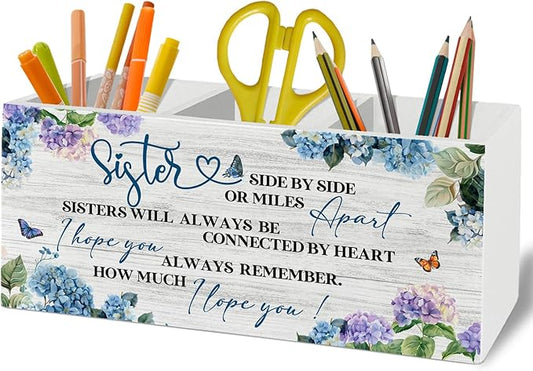 Sister
SIDE BY SIDE
OR MILES Apart
SISTERS WILL ALWAYS BE
CONNECTED BY HEART
I hope you
ALWAYS REMEMBER.
HOW MUCH I lope you !